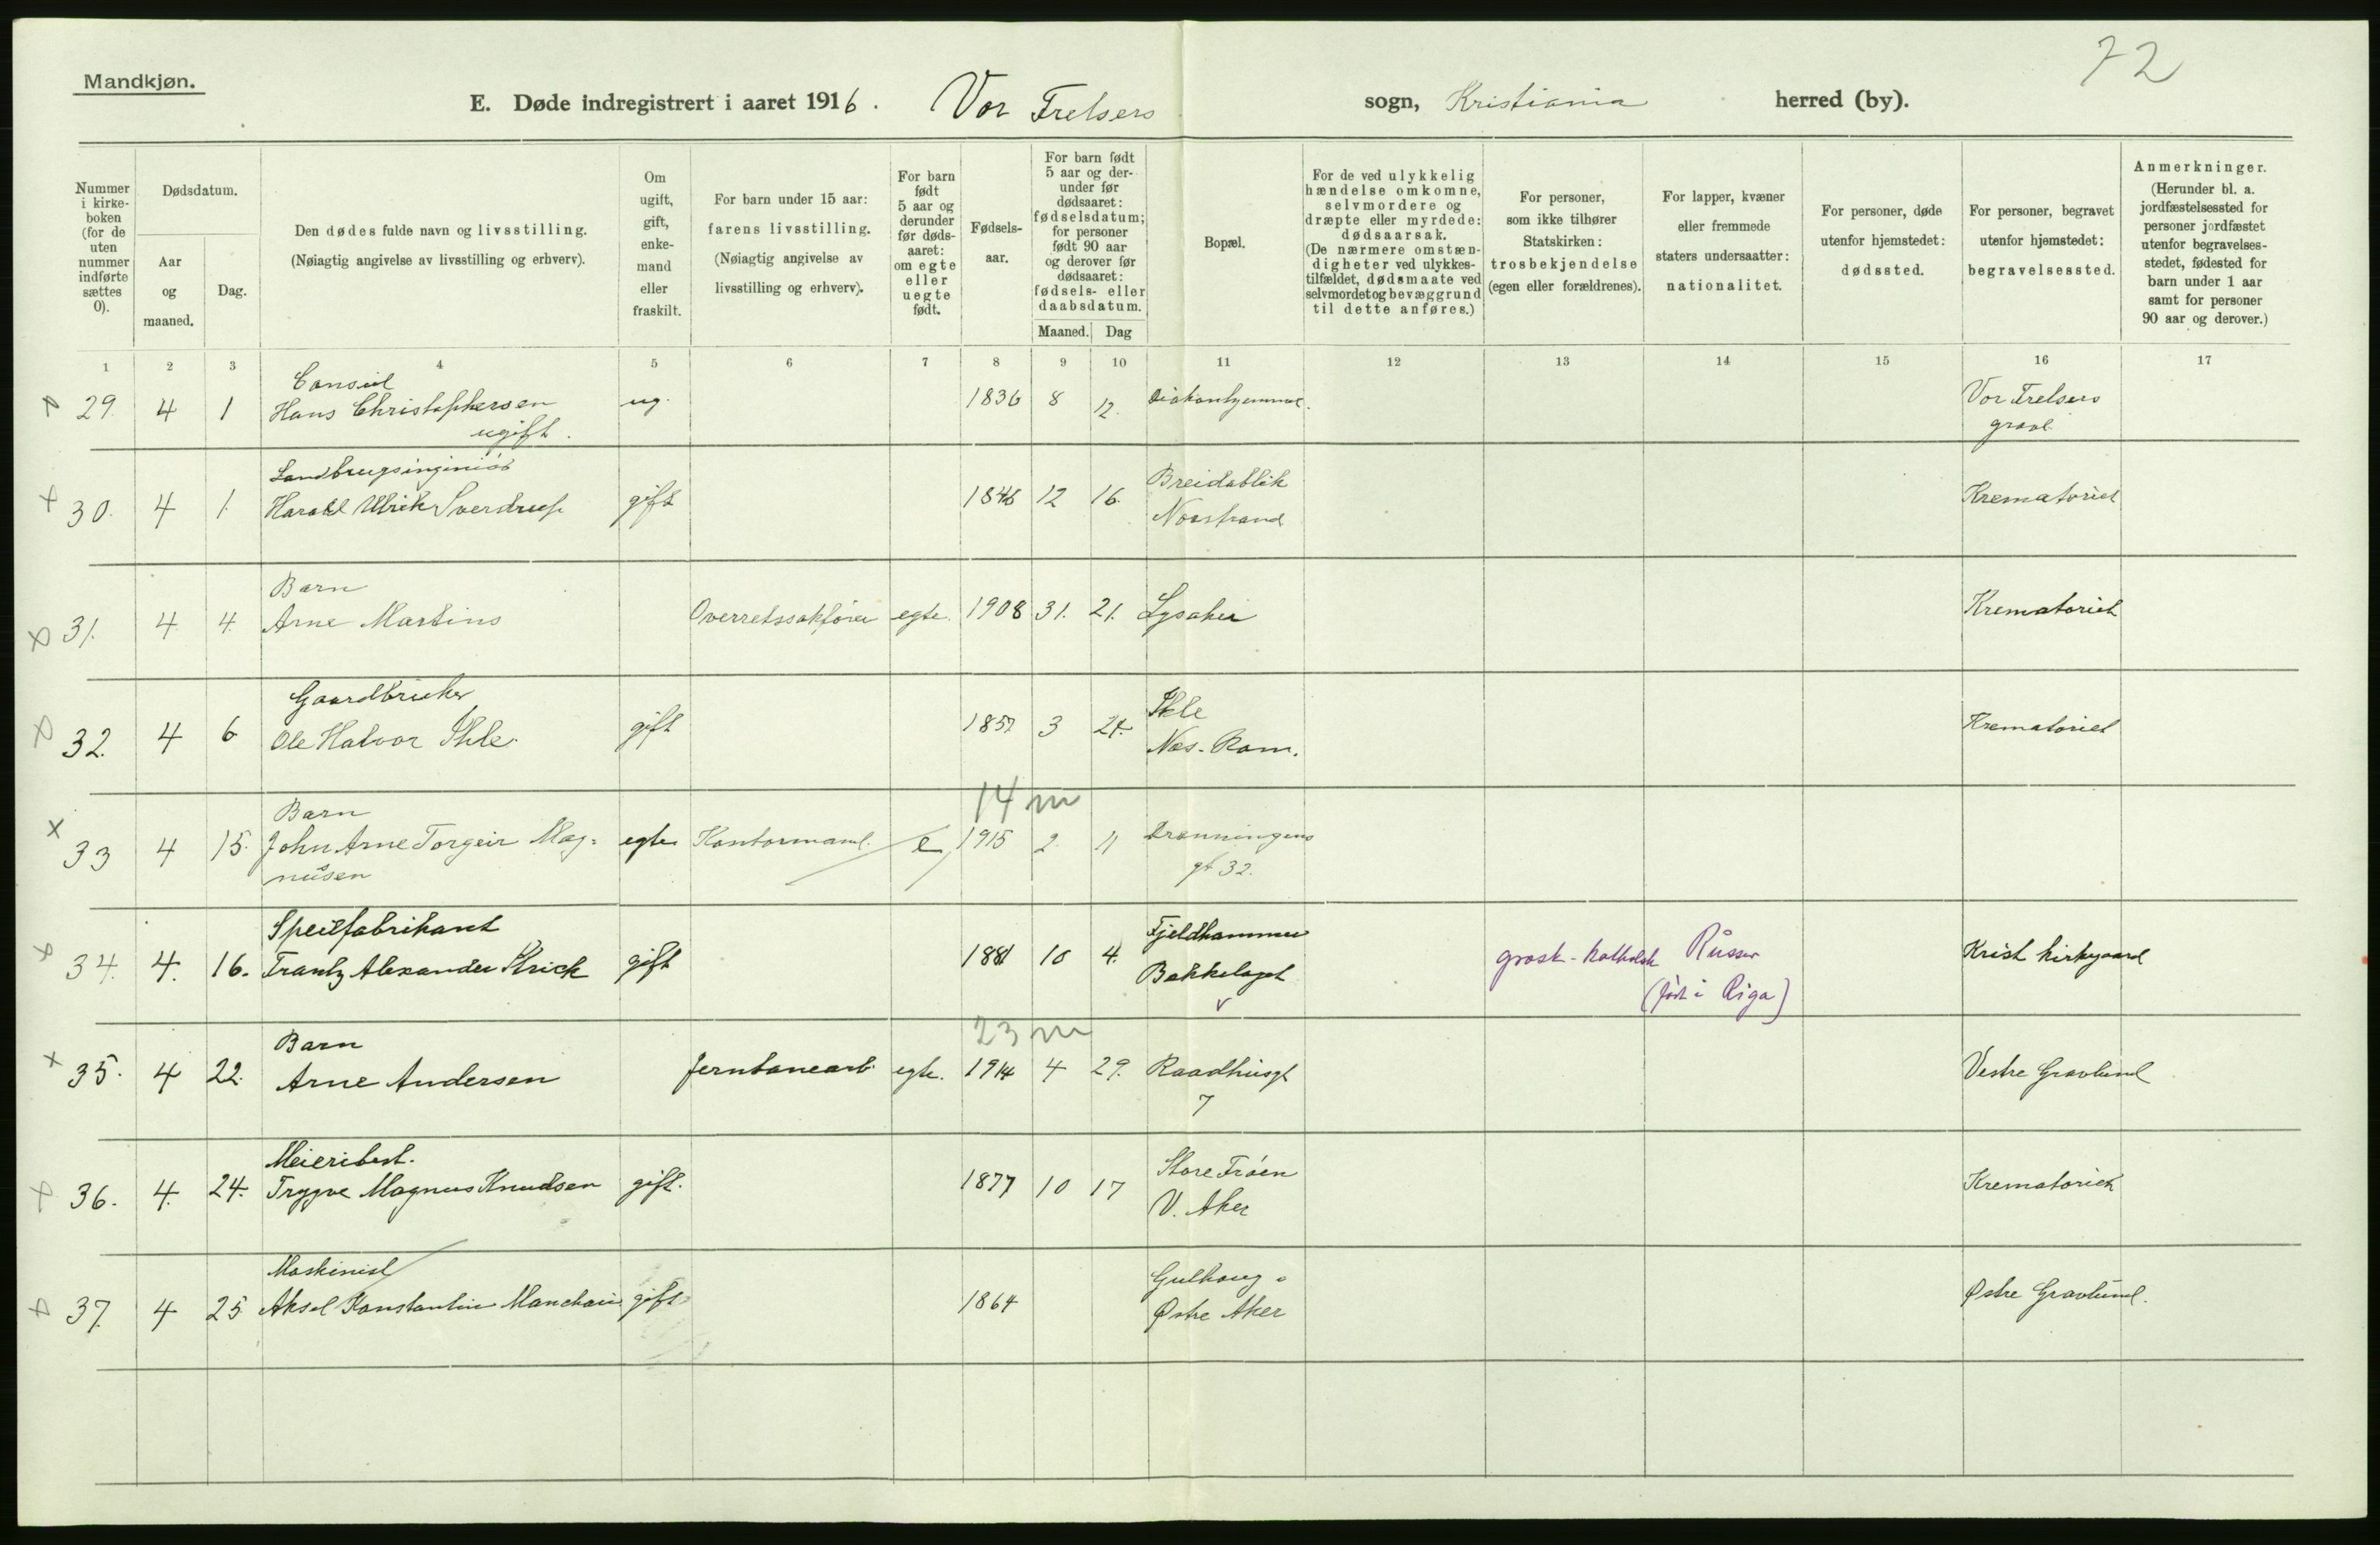 72
Mandkjøn.
E. Døde indregistrert i aaret 1916. Vor Frelsers sogn, Kristiania herred (by).
Nummer i kirke-boken (for de uten nummer indførte sættes 0).
Dødsdatum.
Aar og maaned.
Dag.
Den dødes fulde navn og livsstilling.
(Nøiagtig angivelse av livsstilling og erhverv).
Om ugift, gift, enke-mand eller fraskilt.
For barn under 15 aar: farens livsstilling.
(Nøiagtig angivelse av livsstilling og erhverv).
For barn født 5 aar og derunder før døds-aaret: om egte eller uegte født.
Fødsels-aar.
For barn født 5 aar og der-under før dødsaaret: fødselsdatum; for personer født 90 aar og derover før dødsaaret: fødsels- eller daabsdatum.
Maaned. Dag
Bopæl.
For de ved ulykkelig hændelse omkomne, selvmordere og dræpte eller myrdede: dødsaarsak.
(De nærmere omstæn-digheter ved ulykkes-tilfældet, dødsmaate ved selvmordet og bevæggrund til dette anføres.)
For personer, som ikke tilhører Statskirken: trosbekjendelse (egen eller forældrenes).
For lapper, kvæner eller fremmede staters undersaatter: nationalitet.
For personer, døde utenfor hjemstedet: dødssted.
For personer, begravet utenfor hjemstedet: begravelsessted.
Anmerkninger.
(Herunder bl. a. jordfæstelsessted for personer jordfæstet utenfor begravelses-stedet, fødested for barn under 1 aar samt for personer 90 aar og derover.)
1 2 3 4 5 6 7 8 9 10 11 12 13 14 15 16 17
Consul
29. 4 1 Hans Christophersen ug. 1836 8 12. Diakonhjemmet. Vor Frelsers
ugift. gravl.
Landbrugsingeniør Breidablik
30. 4 1. Harald Ulrik Sverdrup gift 1846 12 16. Krematoriet
Norstrand
Barn
31. 4 4. Arne Martins Overretssakfører egte. 1908 31. 21. Lysaker Krematoriet
Gaardbruker Ihle
32. 4 6 Ole Halvor Ihle. gift 1857 3 24. Krematoriet
Nes. Rom.
14 m
Barn
33 4 15. John Arne Torgeir Mag- egte Kontormand. e 1915 2. 11 Dronningens
nusen gt 32.
Speilfabrikant Fjeldhammer
34. 4. 16. Frantz Alexander Strick gift 1881 10 4. græsk-katholsk Russer Krist kirkegaard
Bækkelaget (født i Riga)
23 m
Barn
35. 4 22. Arne Andersen Jernbanearb. egte. 1914 4 29. Raadhusgt Vestre Gravlund
7
Meieribest. Store Frøen
36. 4. 24. Trygve Magnus Knudsen gift. 1877 10 17 Krematoriet
V. Aker
Maskinist Gulhaug
37. 4 25 Aksel Konstantin gift 1864 Østre Gravlund.
Østre Aker